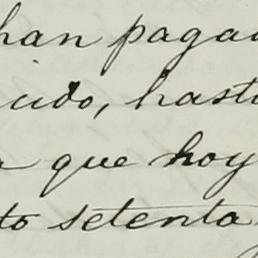 han paga
cido, hast
a que hoy
to setenta